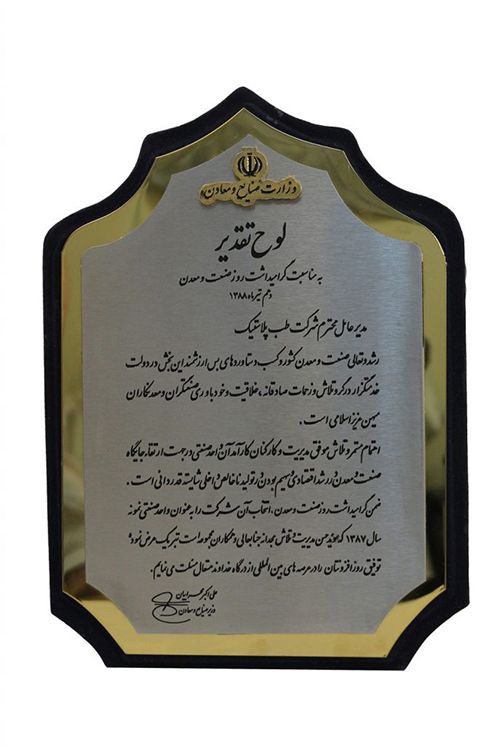 وزارت صنایع و معادن
لوح تقدیر
به مناسبت گرامیداشت روز صنعت و معدن
دهم تیرماه ۱۳۸۸
مدیر عامل محترم شرکت طب پلاستیک
رشد و تعالی صنعت و معدن کشور و کسب دستاوردهای بس ارزشمند این بخش در دولت
خدمتگزار در گرو تلاش و زحمات صادقانه، خلاقیت و خودباوری صنعتگران و معدنکاران
میهن عزیز اسلامی است.
اهتمام مستمر و تلاش موفق مدیریت و کارکنان کارآمد آن واحد صنعتی در جهت ارتقاء جایگاه
صنعت و معدن در رشد اقتصادی و سهیم بودن در تولید ناخالص داخلی شایسته قدردانی است.
ضمن گرامیداشت روز صنعت و معدن، انتخاب آن شرکت را به عنوان واحد صنعتی نمونه
سال ۱۳۸۷ که موید حسن مدیریت و تلاش مجدانه جنابعالی و همکاران مجموعه است تبریک عرض نموده و
توفیق روزافزونتان را در عرصه های بین المللی از درگاه خداوند متعال مسئلت می نمایم.
علی اکبر محرابیان
وزیر صنایع و معادن